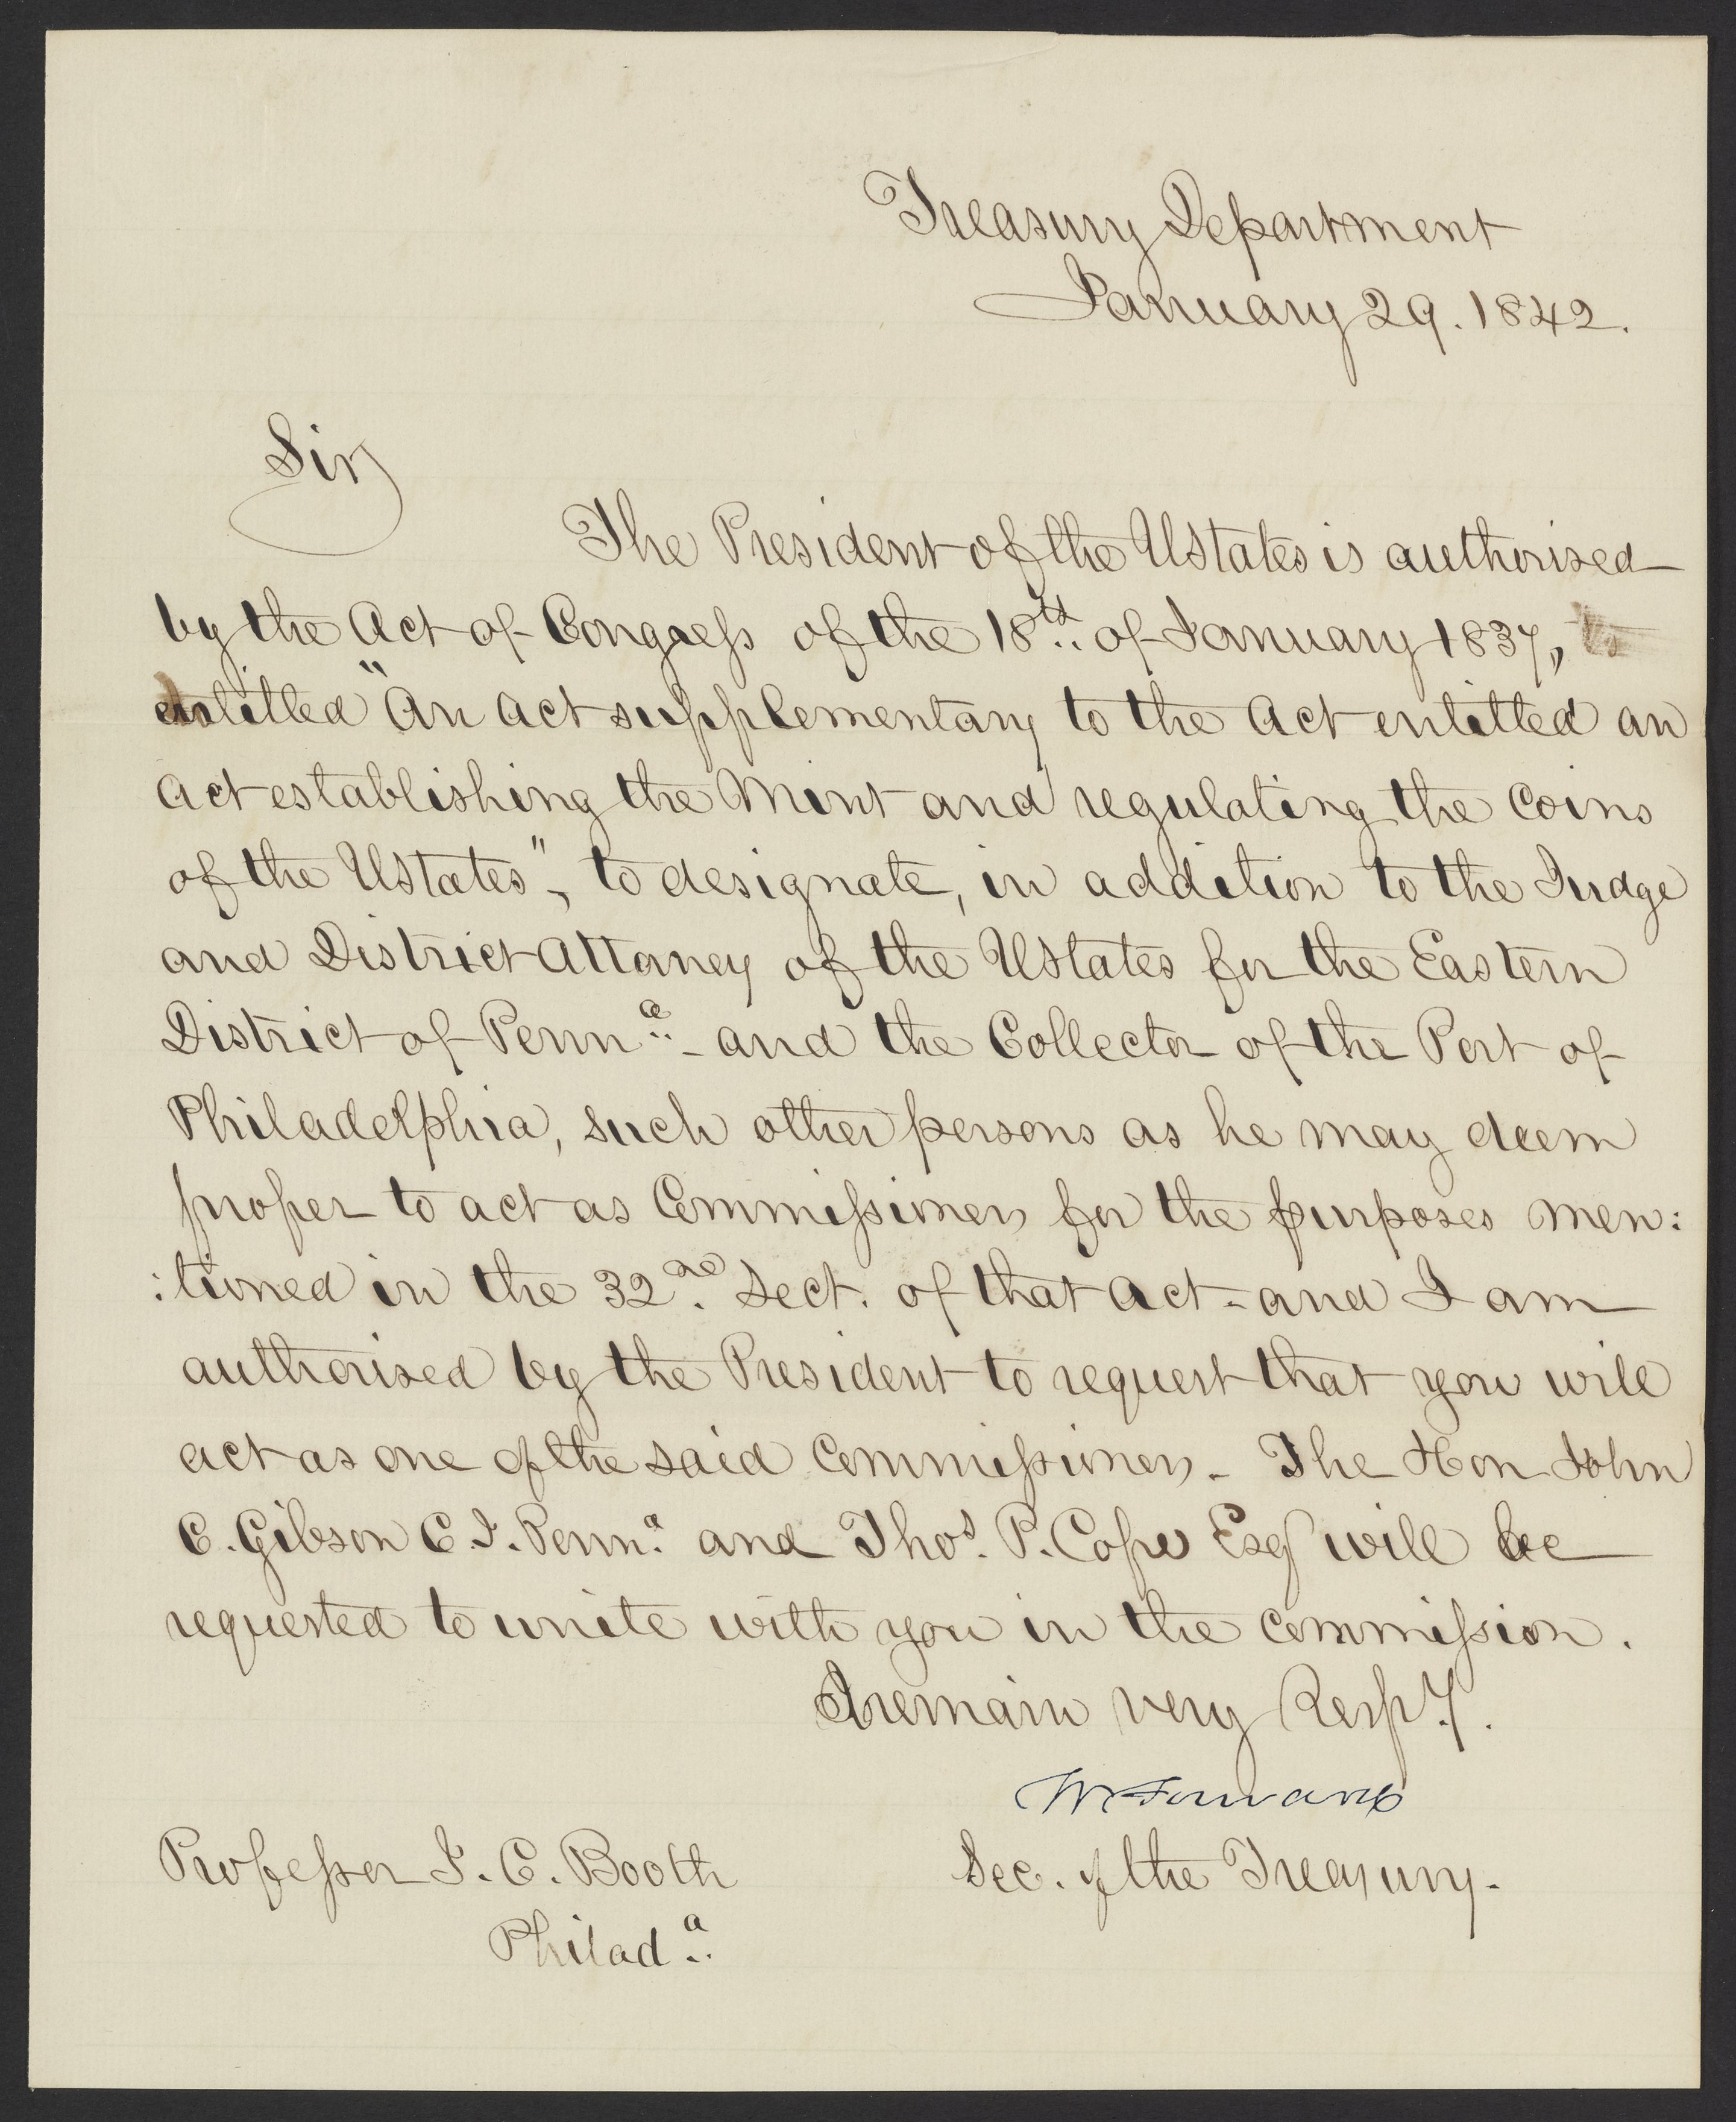 Treasury Department
January 29. 1842.
Sir,
The President of the UStates is authorised
by the Act of Congress of the 18th. of January 1837,
entitled "An act supplementary to the act entitled an
act establishing the Mint and regulating the Coins
of the UStates", to designate, in addition to the Judge
and District Attorney of the UStates for the Eastern
District of Penna. - and the Collector of the Port of
Philadelphia, such other persons as he may deem
proper to act as Commissioners for the purposes men:
:tioned in the 32nd. Sect. of that act - and I am
authorised by the President to request that you will
act as one of the said Commissioners. The Hon John
C. Gibson C. J. Penna. and Thos. P. Cope Esq will be
requested to unite with you in the commission.
I remain very Respy.
W Forward
Sec. of the Treasury.
Professor J. C. Booth
Philada.